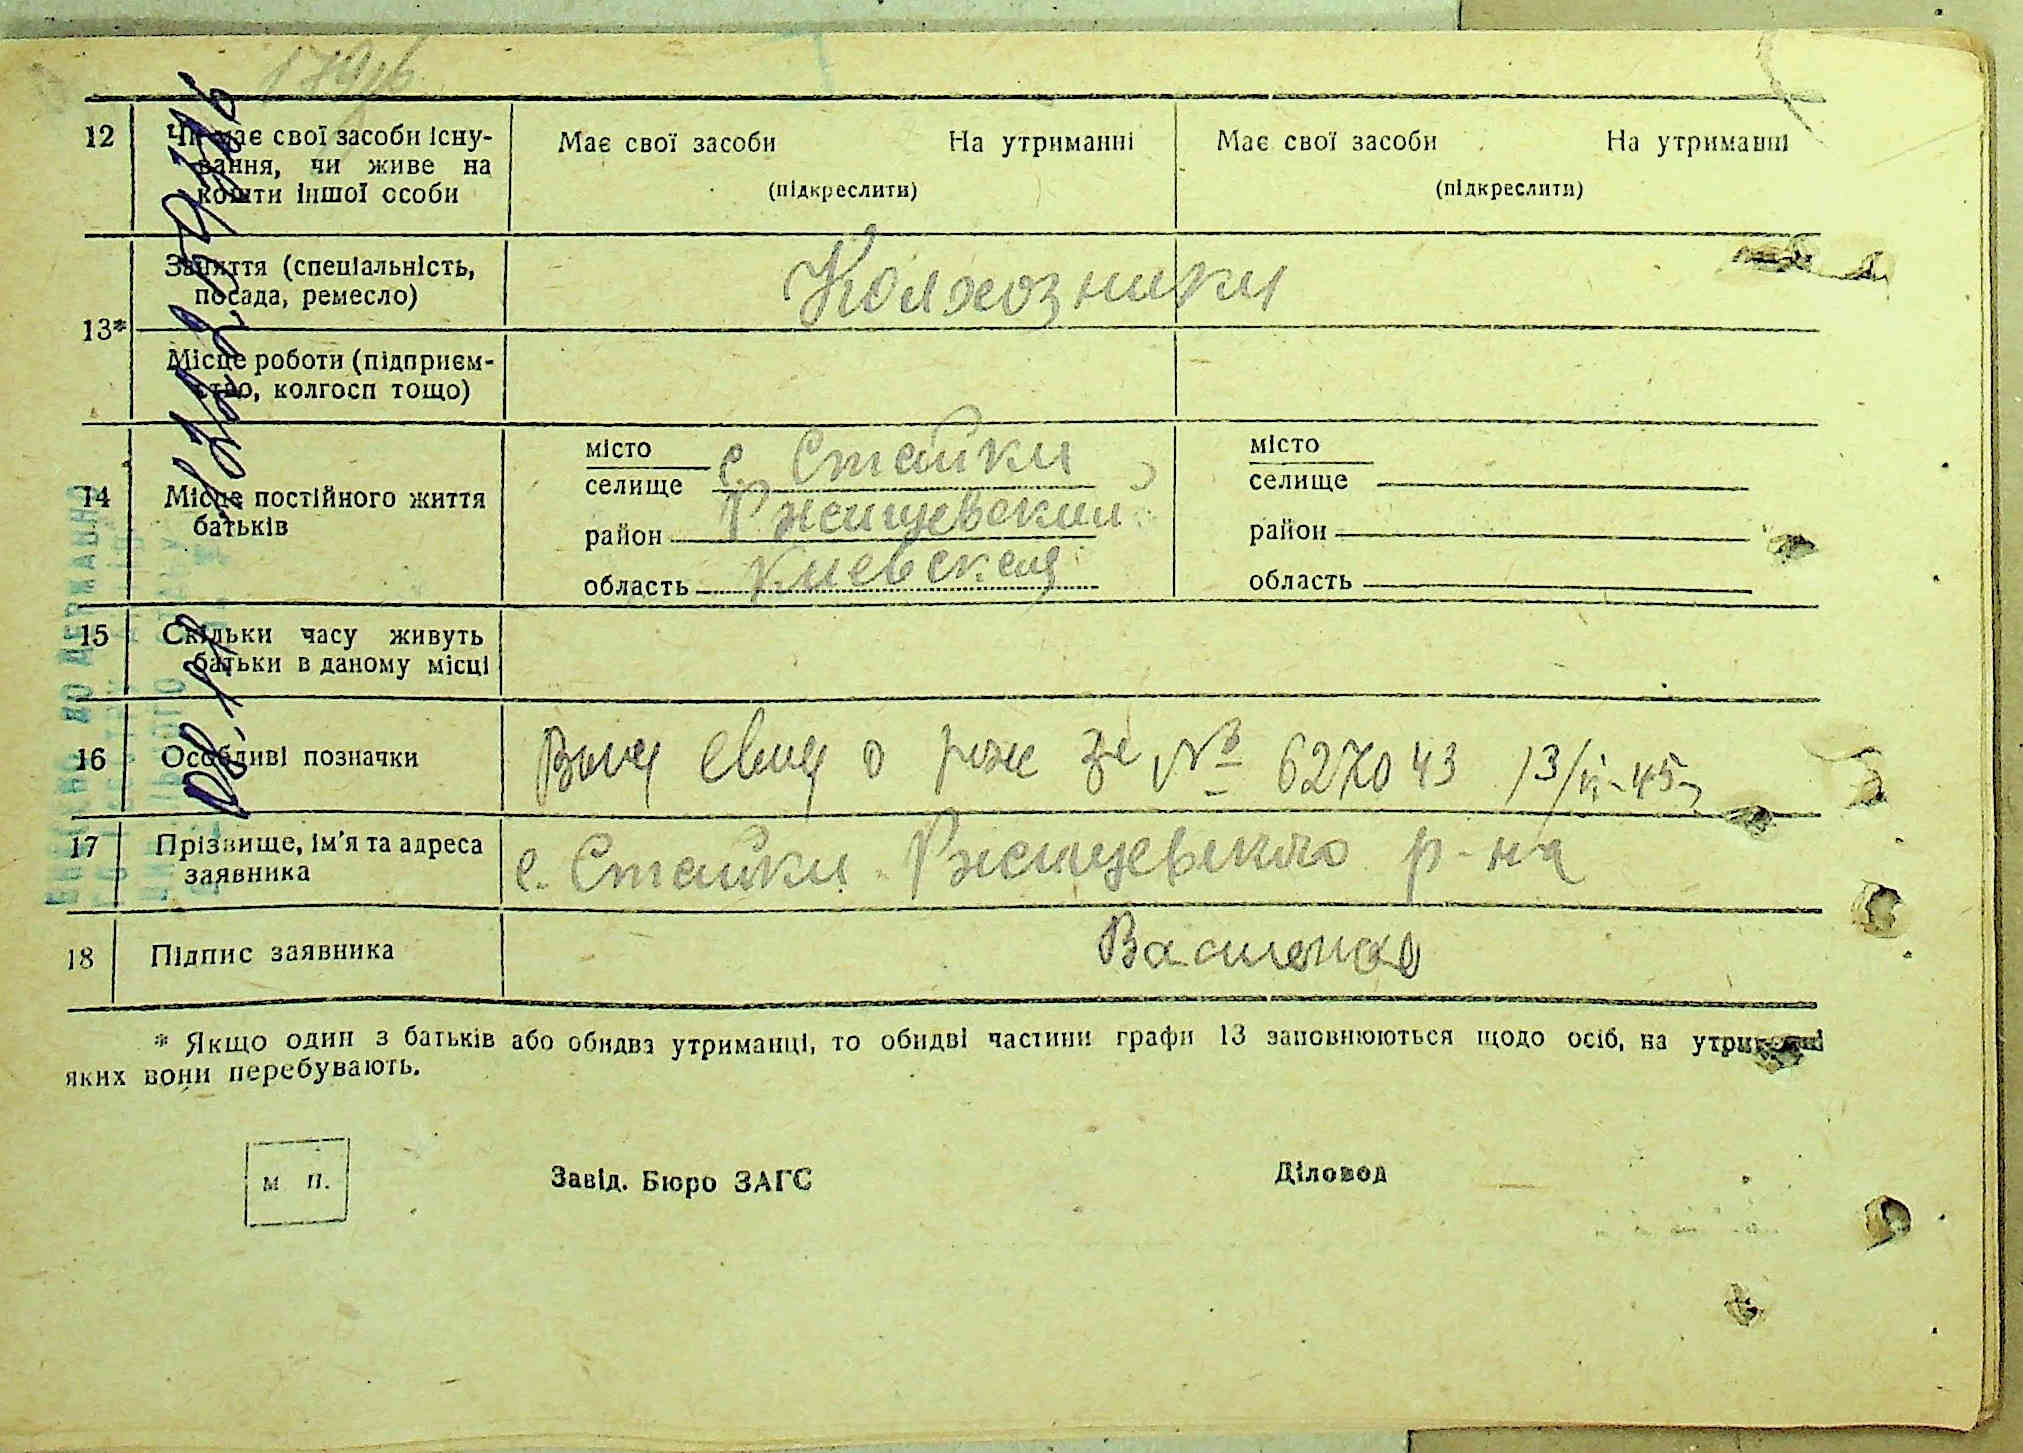 179зв
12 Чи має свої засоби існу-
вання, чи живе на
кошти іншої особи
Має свої засоби На утриманні
(підкреслити)
Має свої засоби На утриманні
(підкреслити)
13*
Заняття (спеціальність,
посада, ремесло)
Колхозники
Місце роботи (підприєм-
ство, колгосп тощо)
14 Місце постійного життя
батьків
місто
селище с. Стайки
район Ржищевский
область Киевская
місто
селище
район
область
15 Скільки часу живуть
батьки в даному місці
16 Особливі позначки
о рож за № 627043 13/II-45
17 Прізвище, ім'я та адреса
заявника
с. Стайки Ржищевского р-на
18 Підпис заявника
* Якщо один з батьків або обидва утриманці, то обидві частини графи 13 заповнюються щодо осіб, на утриманні
яких вони перебувають.
м п.
Завід. Бюро ЗАГС
Діловод